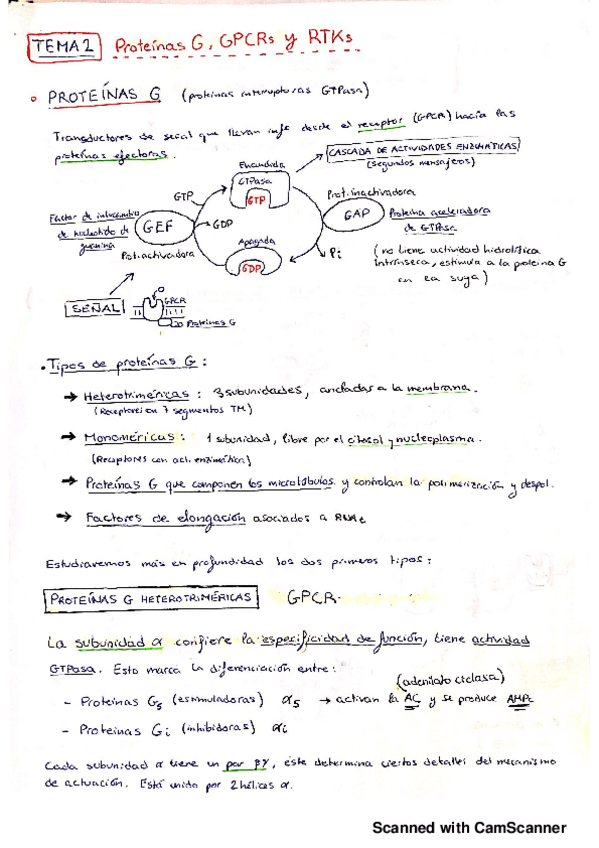 TEMA 2 Proteínas G, GPCRs y RTKs
PROTEÍNAS G (proteínas interruptoras GTPasa)
Transductores de señal que llevan info desde el receptor (GPCR) hacia las
proteínas efectoras.
CASCADA DE ACTIVIDADES ENZIMÁTICAS
(segundos mensajeros)
Encendida
GTPasa
GTP
GTP
GDP
Factor de intercambio
de nucleótido de
guanina
GEF
Prot. activadora
Apagada
GDP
Prot. inactivadora
GAP
Proteína aceleradora
de GTPasa
Pi
(no tiene actividad hidrolítica
intrínseca, estimula a la proteína G
en la suya)
SEÑAL
GPCR
Proteínas G
· Tipos de proteínas G:
→ Heterotriméricas: 3 subunidades, ancladas a la membrana.
(Receptores en 7 segmentos TM)
→ Monoméricas: 1 subunidad, libre por el citosol y nucleoplasma.
(Receptores con act. enzimática)
→ Proteínas G que componen los microtúbulos y controlan la polimerización y despol.
→ Factores de elongación asociados a RNAt
Estudiaremos más en profundidad los dos primeros tipos:
PROTEÍNAS G HETEROTRIMÉRICAS GPCR
La subunidad α confiere la especificidad de función, tiene actividad
GTPasa. Esto marca la diferenciación entre:
(adenilato ciclasa)
- Proteínas Gs (estimuladoras) αs → activan la AC y se produce AMPc
- Proteínas Gi (inhibidoras) αi
Cada subunidad α tiene un par βγ, éste determina ciertos detalles del mecanismo
de actuación. Está unido por 2 hélices α.
Scanned with CamScanner